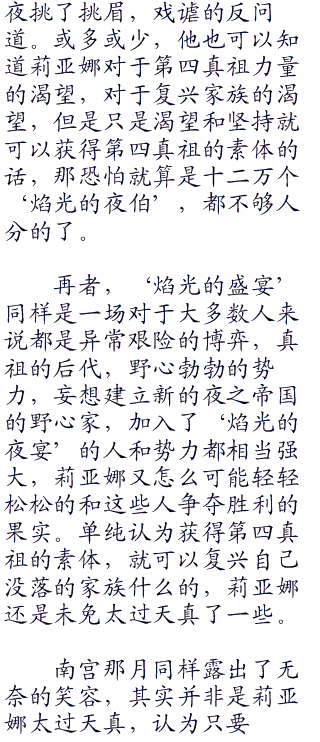 夜挑了挑眉，戏谑的反问
道。或多或少，他也可以知
道莉亚娜对于第四真祖力量
的渴望，对于复兴家族的渴
望，但是只是渴望和坚持就
可以获得第四真祖的素体的
话，那恐怕就算是十二万个
‘焰光的夜伯’，都不够人
分的了。
再者，‘焰光的盛宴’
同样是一场对于大多数人来
说都是异常艰险的博弈，真
祖的后代，野心勃勃的势
力，妄想建立新的夜之帝国
的野心家，加入了‘焰光的
夜宴’的人和势力都相当强
大，莉亚娜又怎么可能轻轻
松松的和这些人争夺胜利的
果实。单纯认为获得第四真
祖的素体，就可以复兴自己
没落的家族什么的，莉亚娜
还是未免太过天真了一些。
南宫那月同样露出了无
奈的笑容，其实并非是莉亚
娜太过天真，认为只要